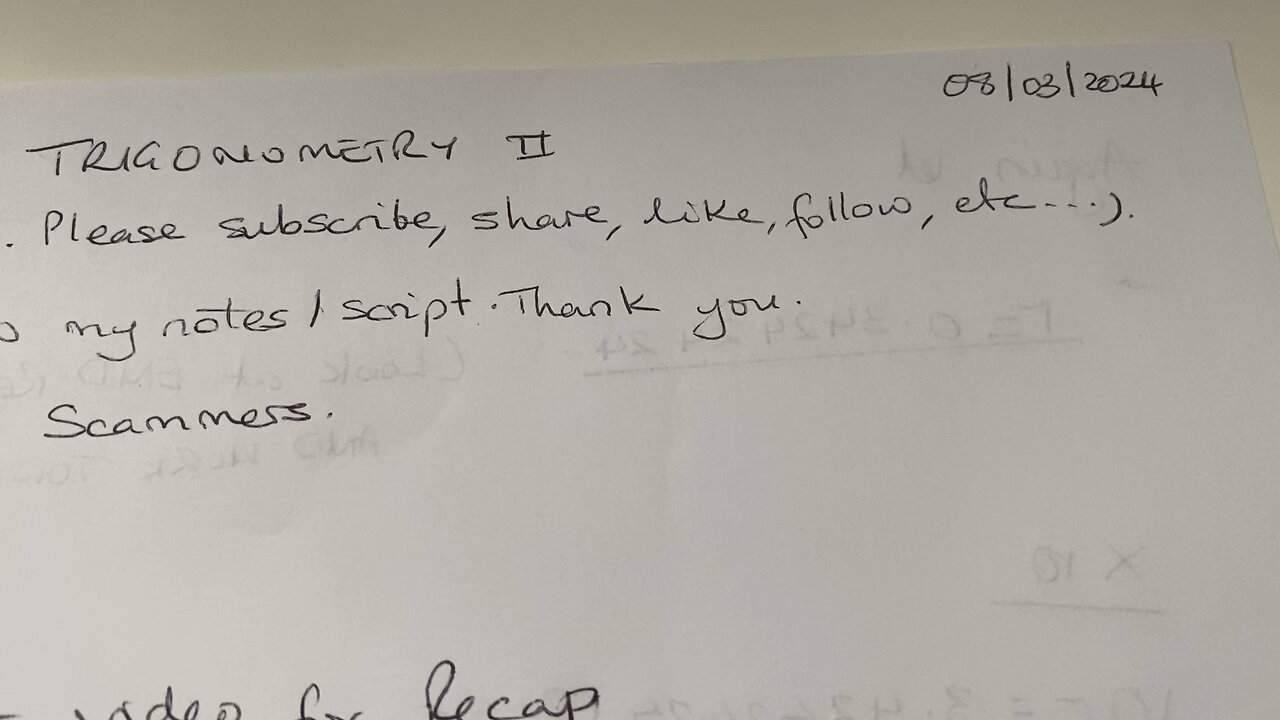 08/03/2024
TRIGONOMETRY II
. Please subscribe, share, like, follow, etc...).
my notes / script. Thank you.
Scanners.
video for Recap